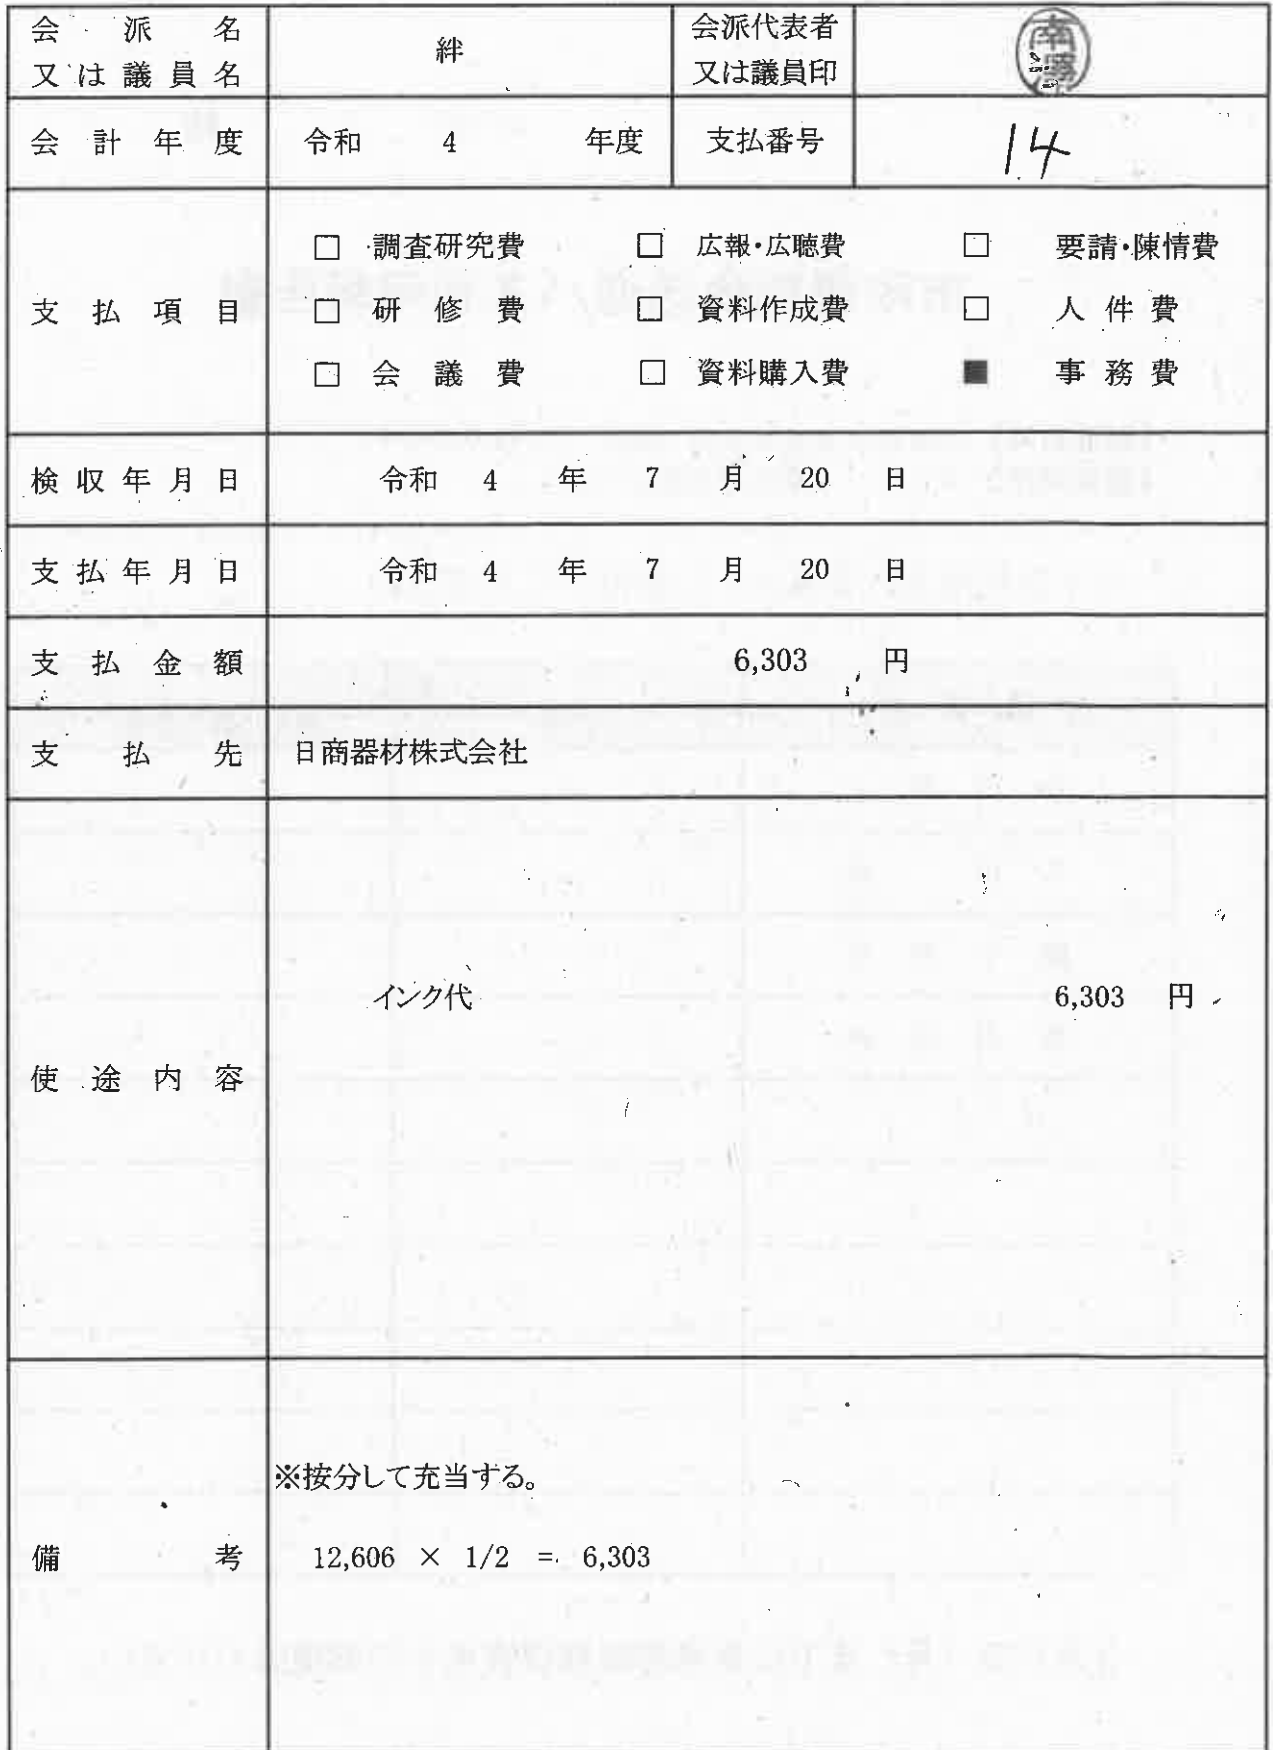 会派名 絆 会派代表者
又は議員名 又は議員印
会計年度 令和 4 年度 支払番号 14
□ 調査研究費 □ 広報・広聴費 □ 要請・陳情費
支払項目 □ 研修費 □ 資料作成費 □ 人件費
□ 会議費 □ 資料購入費 ■ 事務費
検収年月日 令和 4 年 7 月 20 日
支払年月日 令和 4 年 7 月 20 日
支払金額 6,303 円
支払先 日商器材株式会社
インク代 6,303 円
使途内容
※按分して充当する。
備考 12,606 × 1/2 = 6,303